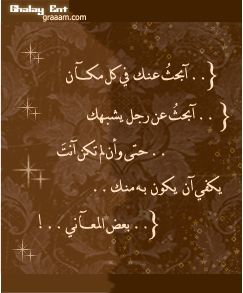 Ghalay Ent
graaam.com
{ . . آبحثُ عنك في كل مكـآن
{ . . آبحثُ عن رجل يشبهك
. . حتى وأن لم تكن آنتَ
يكفي آن يكون به منك . .
{ . . بعض المعـآني . . !